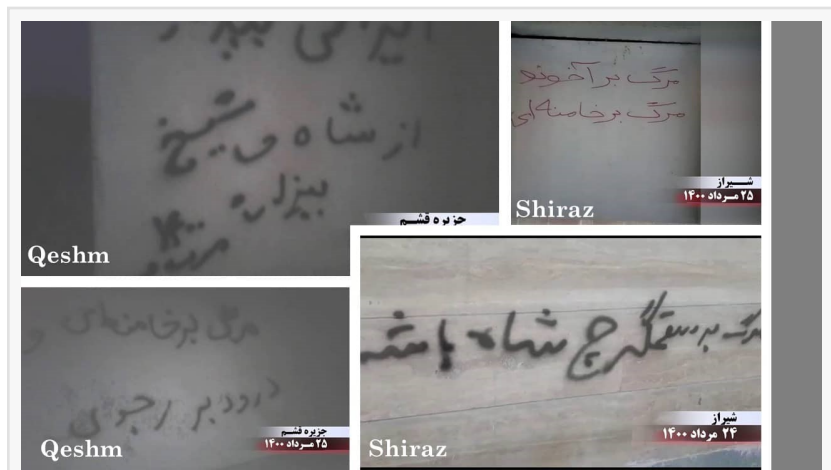 از شاه و شیخ
بیزاره
جزیره قشم
Qeshm
مرگ بر آخوند
مرگ بر خامنه‌ای
شیراز
۲۵ مرداد ۱۴۰۰
Shiraz
مرگ بر خامنه‌ای
درود بر رجوی
جزیره قشم
۲۵ مرداد ۱۴۰۰
Qeshm
مرگ بر ستمگر چ شاه باشه
شیراز
۲۴ مرداد ۱۴۰۰
Shiraz